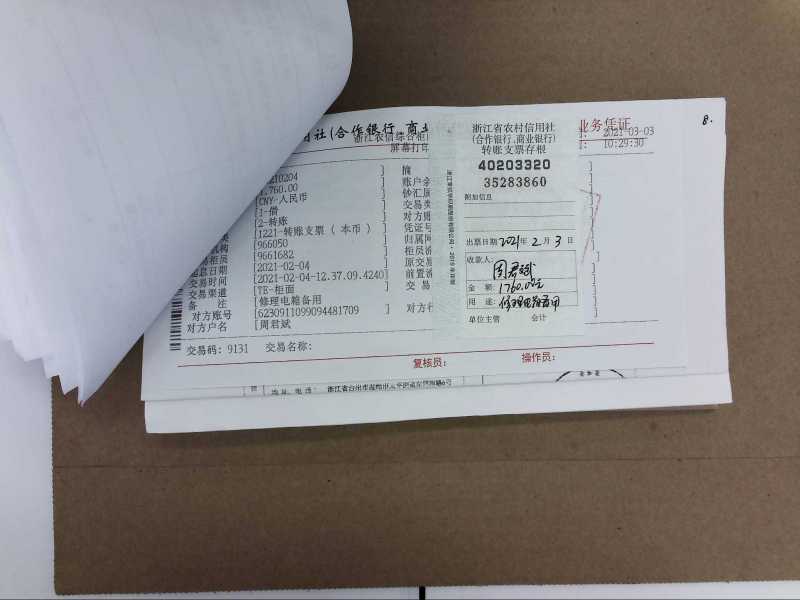 用社(合作银行、商业
业务凭证
8.
浙江农信综合柜
2021-03-03
屏幕打印
10:29:30
210204 ] 摘
1,760.00 ] 账户余
[CNY-人民币 ] 钞汇属
[1-借 ] 交易类
[2-转账 ] 对方账
类 [1221-转账支票(本币) ] 凭证号
机构 [966050 ] 归属网
柜员 [9661682 ] 柜员流
起息日期 [2021-02-04 ] 原交易
交易时间 [2021-02-04-12.37.09.4240] 前置流
交易渠道 [TE-柜面 ] 交易
备 注 [修理电箱备用
对方账号 [6230911099094481709 ] 对方行
对方户名 [周君斌
交易码: 9131 交易名称:
复核员: 操作员:
浙江省农村信用社
(合作银行、商业银行)
转账支票存根
40203320
35283860
附加信息
出票日期 2021 年 2 月 3 日
收款人:
周君斌
金 额: 1760.00元
用 途: 修理电箱备用
单位主管 会计
地址、电话: